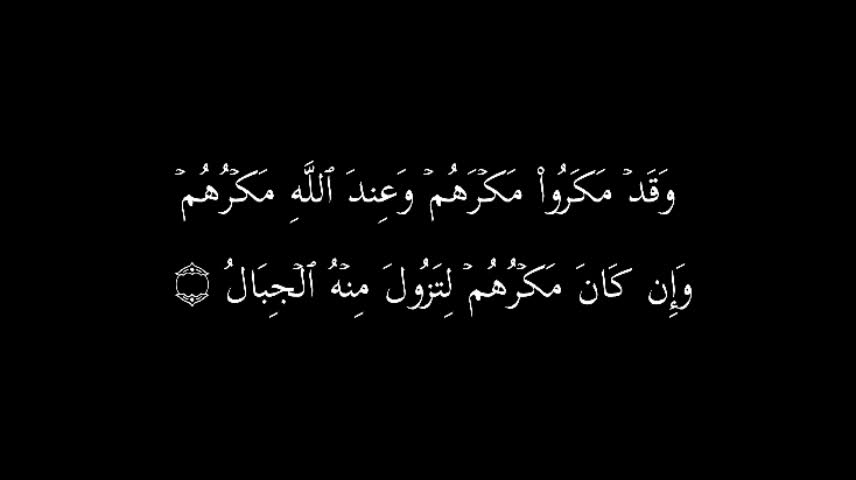 وَقَدۡ مَكَرُواْ مَكۡرَهُمۡ وَعِندَ ٱللَّهِ مَكۡرُهُمۡ
وَإِن كَانَ مَكۡرُهُمۡ لِتَزُولَ مِنۡهُ ٱلۡجِبَالُ ۝